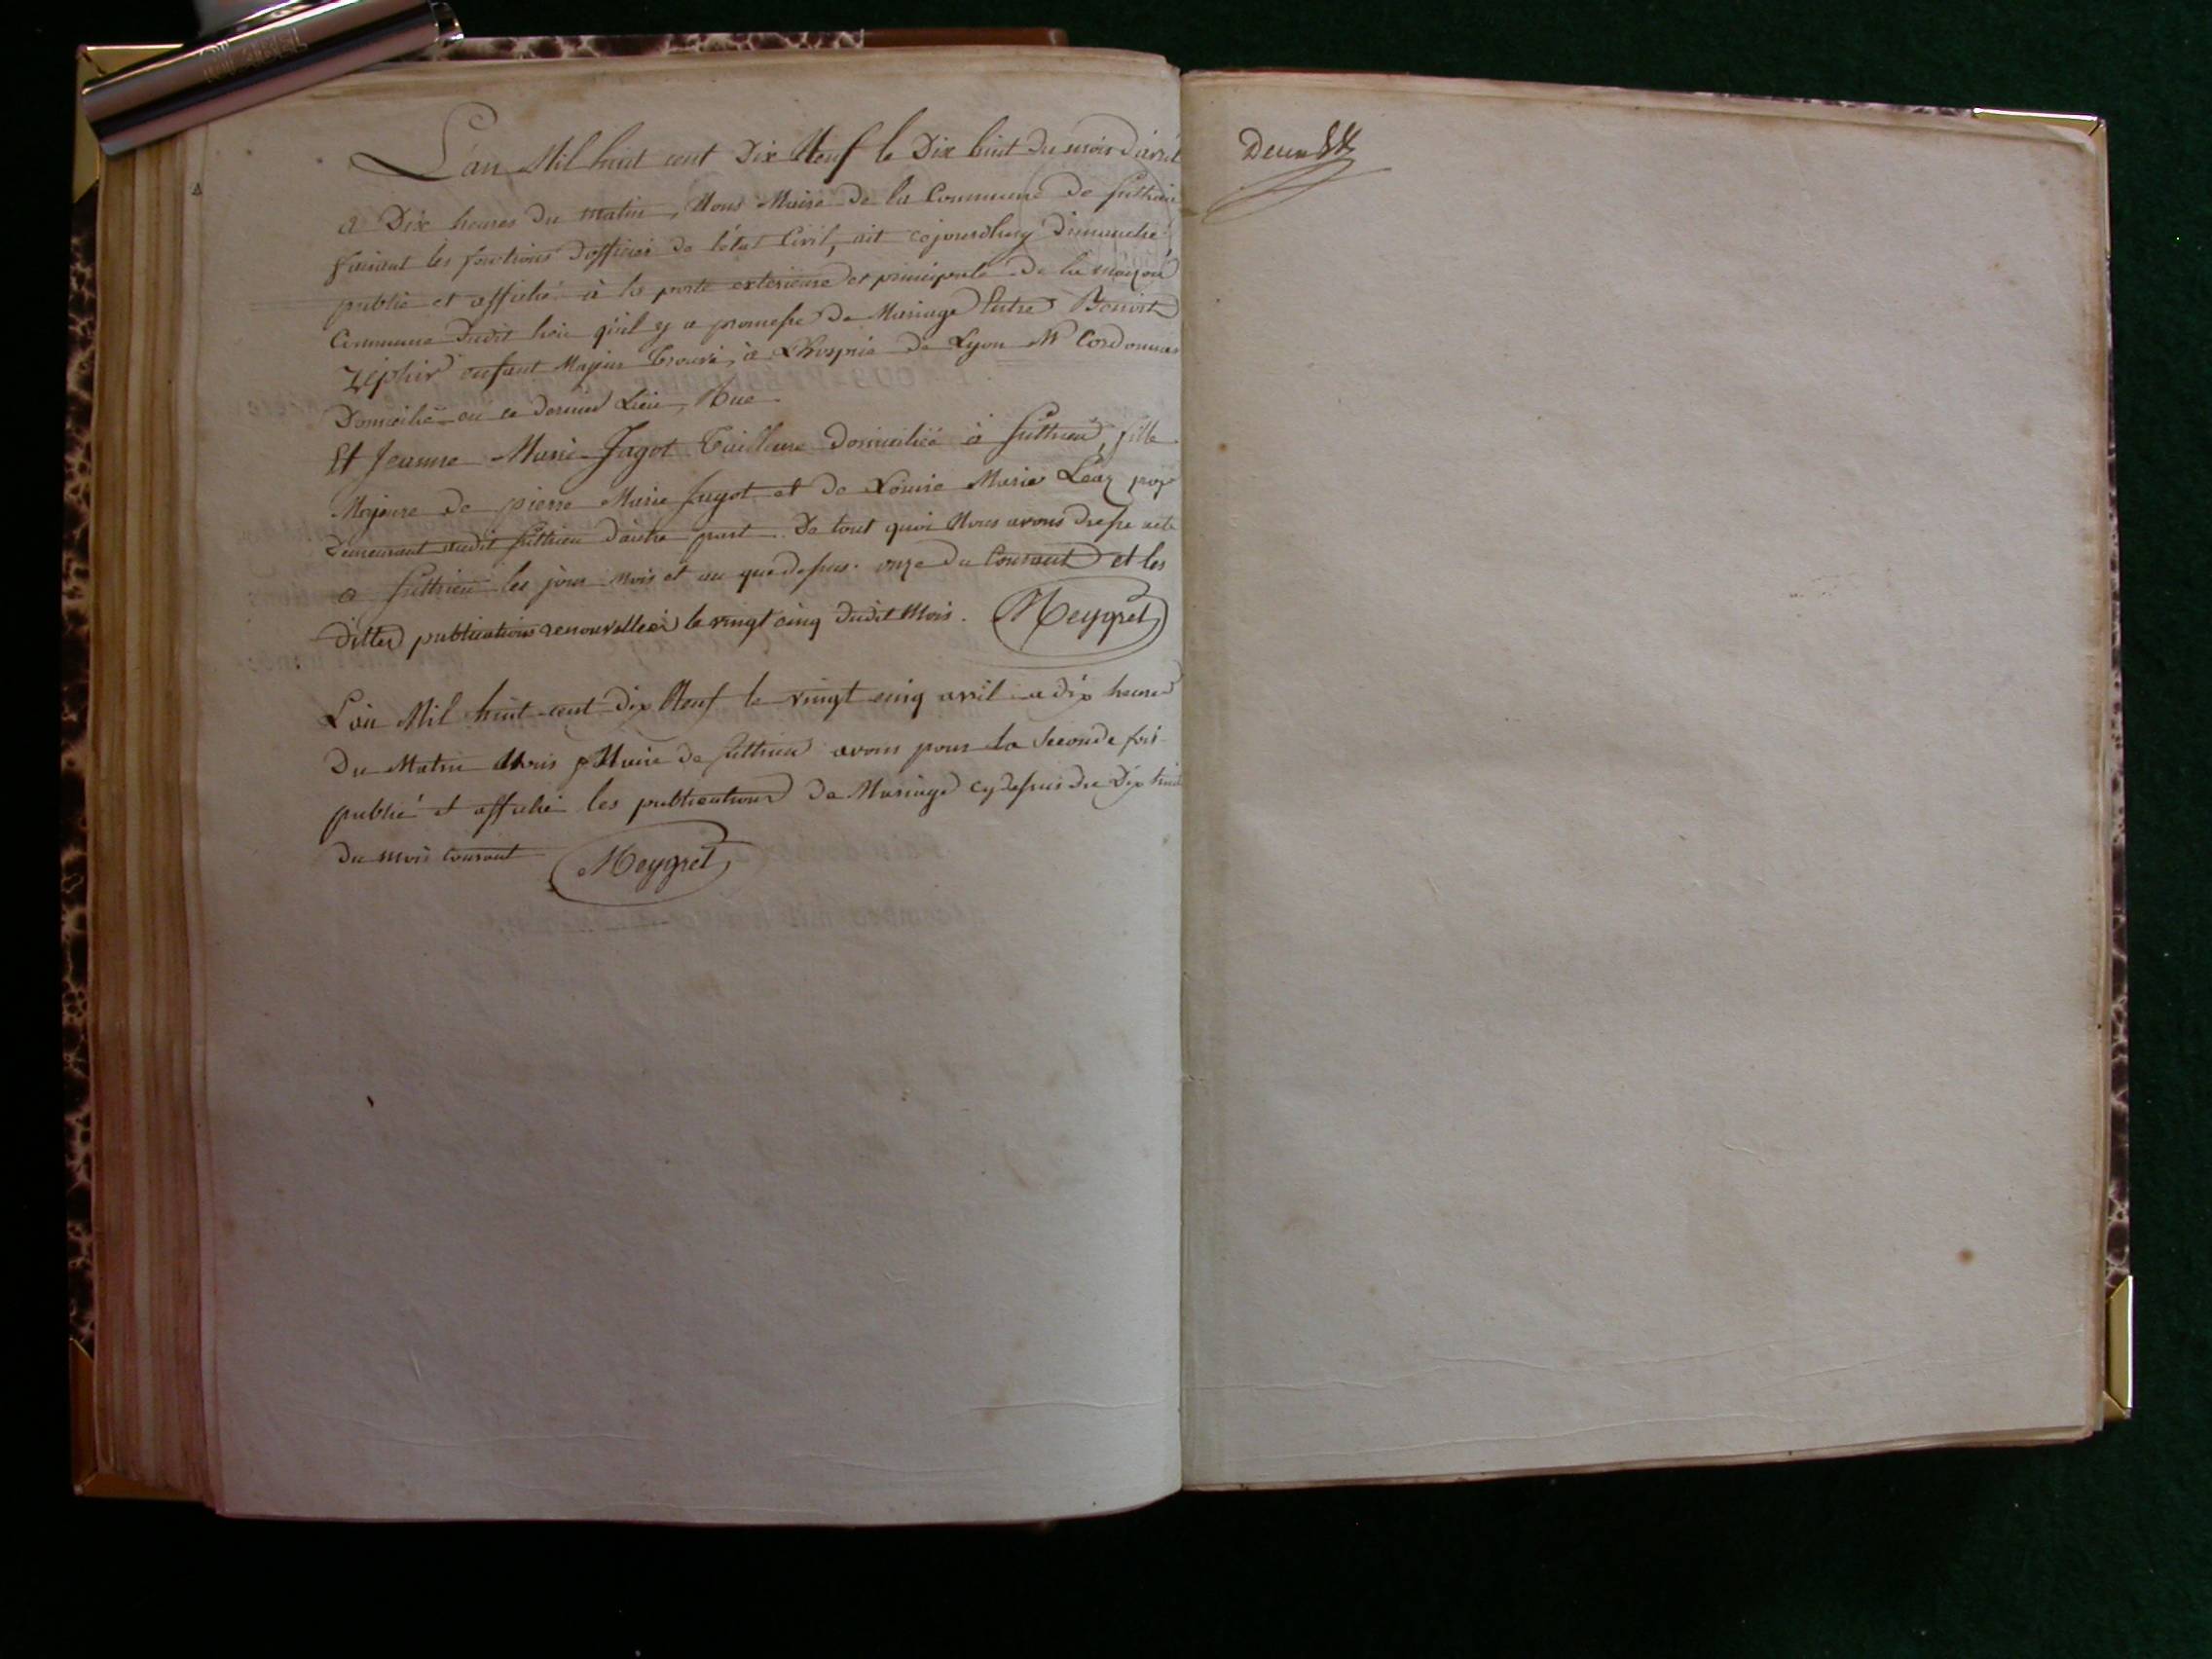 L'an Mil huit cent Dix Neuf le Dix huit du mois d'avril
a Dix heures du matin, Nous Maire de la Commune de Suthrieu
faisant les fonctions d'officier de l'état Civil, ait cejourdhuy dimanche
publié et affiché à la porte exterieure et principale de la maison
Commune dudit lieu qu'il y a promesse de Mariage Entre Benoit
Zéphir enfant Majeur trouvé, à L'hospice de Lyon Mt Cordonnier
Domicilié en ce dernier Lieu, Rue
Et Jeanne Marie Jagot Tailleuse domiciliée à Suthrieu, fille
Majeure de pierre Marie Jagot et de Louise Marie Léaz prop
demeurant audit Suthrieu d'autre part. De tout quoi Nous avons dressé acte
a Suthrieu les jour mois et an que dessus. onze du Courant et les
dittes publications renouvellées le vingt cinq dudit Mois. Meygret
L'an Mil huit cent dix Neuf le vingt cinq avril a dix heures
Du Matin Nous Maire de Suthrieu avons pour la Seconde fois
publié et affiché les publications de Mariage cy dessus du Dix huit
du mois courant Meygret